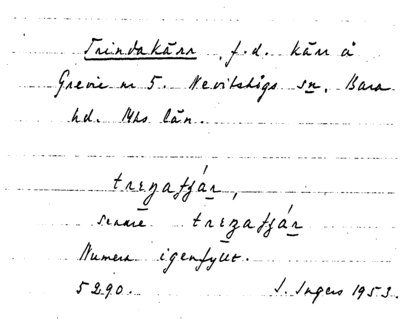 Trindakärr, f.d. kärr å
Grevie nr 5. Nevitshögs sn, Bara
hd. Mhs län.
trezafjár,
senare trezafjár
Numera igenfyllt.
5290. I. Ingers 1953.